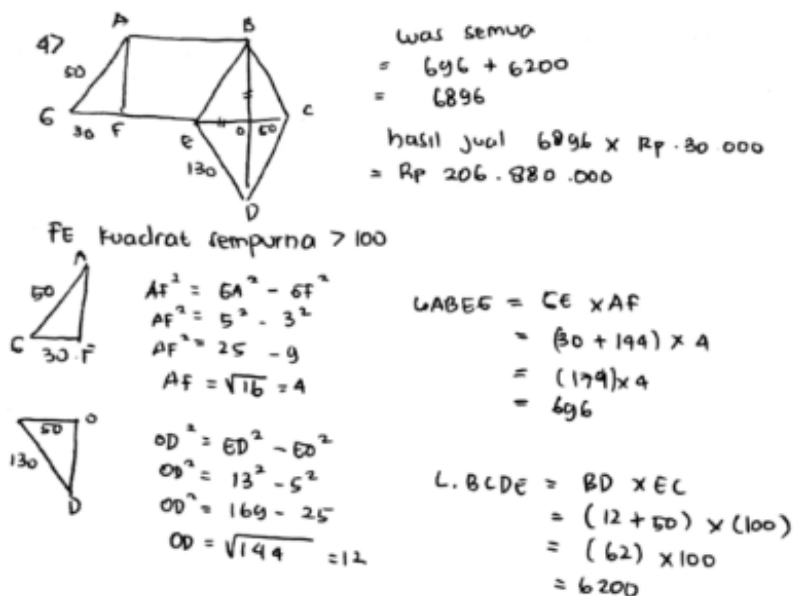 47
A
B
50
G
30
F
E
O
50
C
130
D
Luas semua
= 696 + 6200
= 6896
hasil jual 6896 x Rp.30.000
= Rp 206.880.000
FE kuadrat sempurna > 100
A
50
G
30
F
AF² = GA² - GF²
AF² = 5² - 3²
AF² = 25 - 9
AF = √16 = 4
LABEG = GE x AF
= (30 + 144) x 4
= (174) x 4
= 696
50
O
130
D
OD² = ED² - EO²
OD² = 13² - 5²
OD² = 169 - 25
OD = √144 = 12
L. BCDE = BD x EC
= (12 + 50) x (100)
= (62) x 100
= 6200